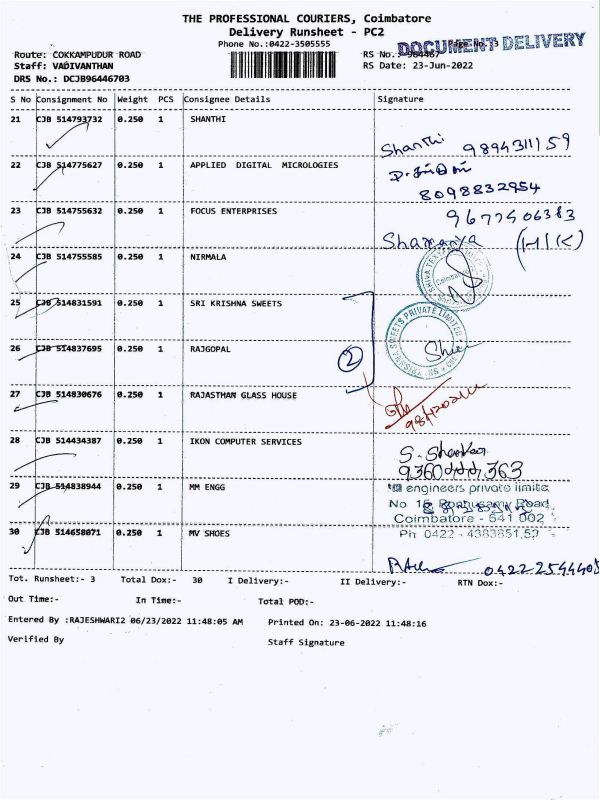 THE PROFESSIONAL COURIERS, Coimbatore
Delivery Runsheet - PC2
Phone No.:0422-3505555
DOCUMENT DELIVERY
Page No.:3
Route: COKKAMPUDUR ROAD
RS No.: 964467
Staff: VADIVANTHAN
RS Date: 23-Jun-2022
DRS No.: DCJB96446703
S No Consignment No Weight PCS Consignee Details Signature
21 CJB 514793732 0.250 1 SHANTHI
Shanthi 9894311159
22 CJB 514775627 0.250 1 APPLIED DIGITAL MICROLOGIES
8098832954
23 CJB 514755632 0.250 1 FOCUS ENTERPRISES
9677406383
24 CJB 514755585 0.250 1 NIRMALA
25 CJB 514831591 0.250 1 SRI KRISHNA SWEETS
SWEETS PRIVATE LIMITED
26 CJB 514837695 0.250 1 RAJGOPAL
2
27 CJB 514830676 0.250 1 RAJASTHAN GLASS HOUSE
28 CJB 514434387 0.250 1 IKON COMPUTER SERVICES
29 CJB 514838944 0.250 1 MM ENGG
engineers private limite
No 16 Ponnusamy Road
Coimbatore - 641 002
30 CJB 514658071 0.250 1 MV SHOES
Ph 0422 - 4383851,52
Tot. Runsheet:- 3 Total Dox:- 30 I Delivery:- II Delivery:- RTN Dox:-
Out Time:- In Time:- Total POD:-
Entered By :RAJESHWARI2 06/23/2022 11:48:05 AM Printed On: 23-06-2022 11:48:16
Verified By Staff Signature